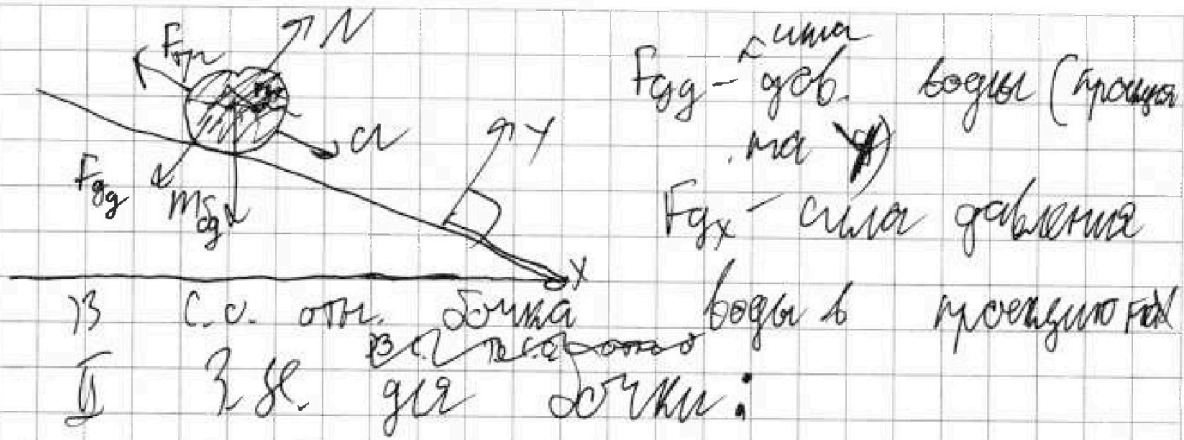 N
Fтр
a
Y
Fдy
mбg
X
Fдy - сила дав. воды (проекция на Y)
Fдx - сила давления воды в проекцию на X
В С.О. отн. бочка
II З.Н. для бочки: